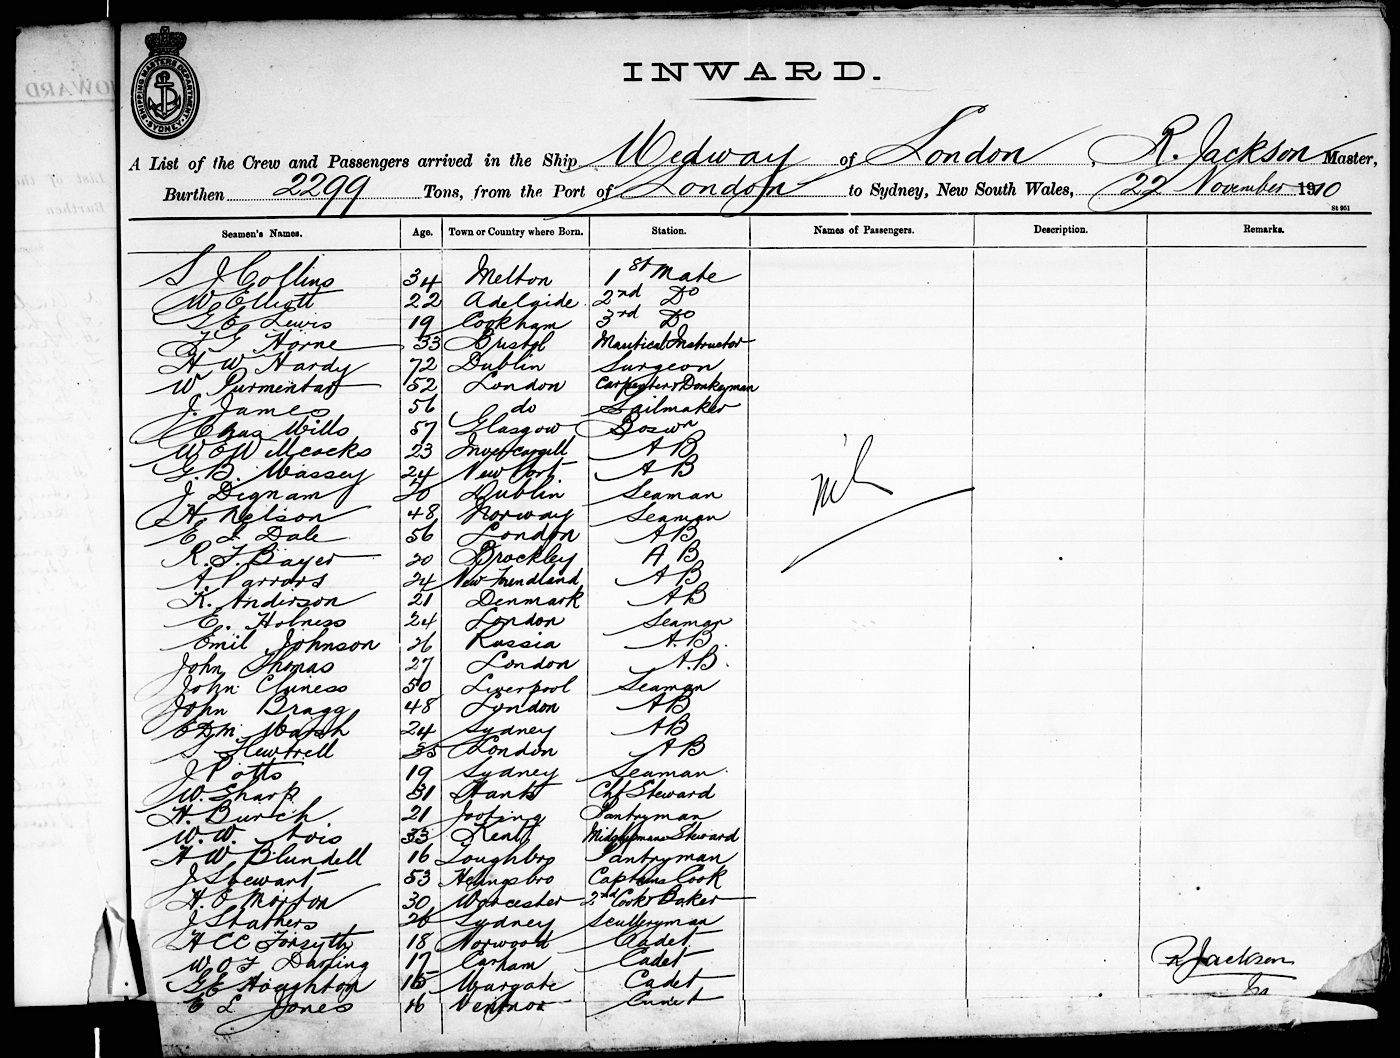 INWARD.
SHIPPING MASTERS DEPARTMENT SYDNEY
A List of the Crew and Passengers arrived in the Ship Medway of London, R. Jackson Master,
Burthen 2299 Tons, from the Port of London to Sydney, New South Wales, 22 November 1910
St 951
Seamen's Names. Age. Town or Country where Born. Station. Names of Passengers. Description. Remarks.
S J Collins 34 Melton 1st Mate
W Elliott 22 Adelaide 2nd Do
G E Lewis 19 Cookham 3rd Do
F G Horne 33 Bristol Nautical Instructor
H W Hardy 72 Dublin Surgeon
W Purmentar 52 London Carpenter & Donkeyman
J. James 56 do Sailmaker
Chas Mills 57 Glasgow Bosun
W E W Mcocks 23 Invercargill A B
G. B. Massey 24 New Port A B
J Dignam 20 Dublin Seaman
H. Nelson 48 Norway Seaman
E J Dale 56 London AB
R. F. Bayer 20 Brockley A B
A. 24 A B
K. Anderson 21 Denmark AB
E. Holness 24 London Seaman
Emil Johnson 26 Russia A.B.
John Thomas 27 London A.B.
John Cluness 50 Liverpool Seaman
John Bragg 48 London AB
Edm Marsh 24 Sydney AB
S Flewtrell 35 London AB
J Potts 19 Sydney Seaman
W. Sharp 31 Hants Chf Steward
H. Burtch 21 Tooting Pantryman
W. W. 33 Kent Midshipmans Steward
H W Blundell 16 Loughbro Pantryman
J Stewart 53 Captains Cook
H. E Morton 30 Worcester 2nd Cook & Baker
J Stathers 26 Sydney Sculleryman
H C C Forsyth 18 Norwood Cadet
W O F Darling 17 Cadet
G E Houghton 16 Margate Cadet
E L Jones 16 Ventnor Cadet
Nil
R Jackson